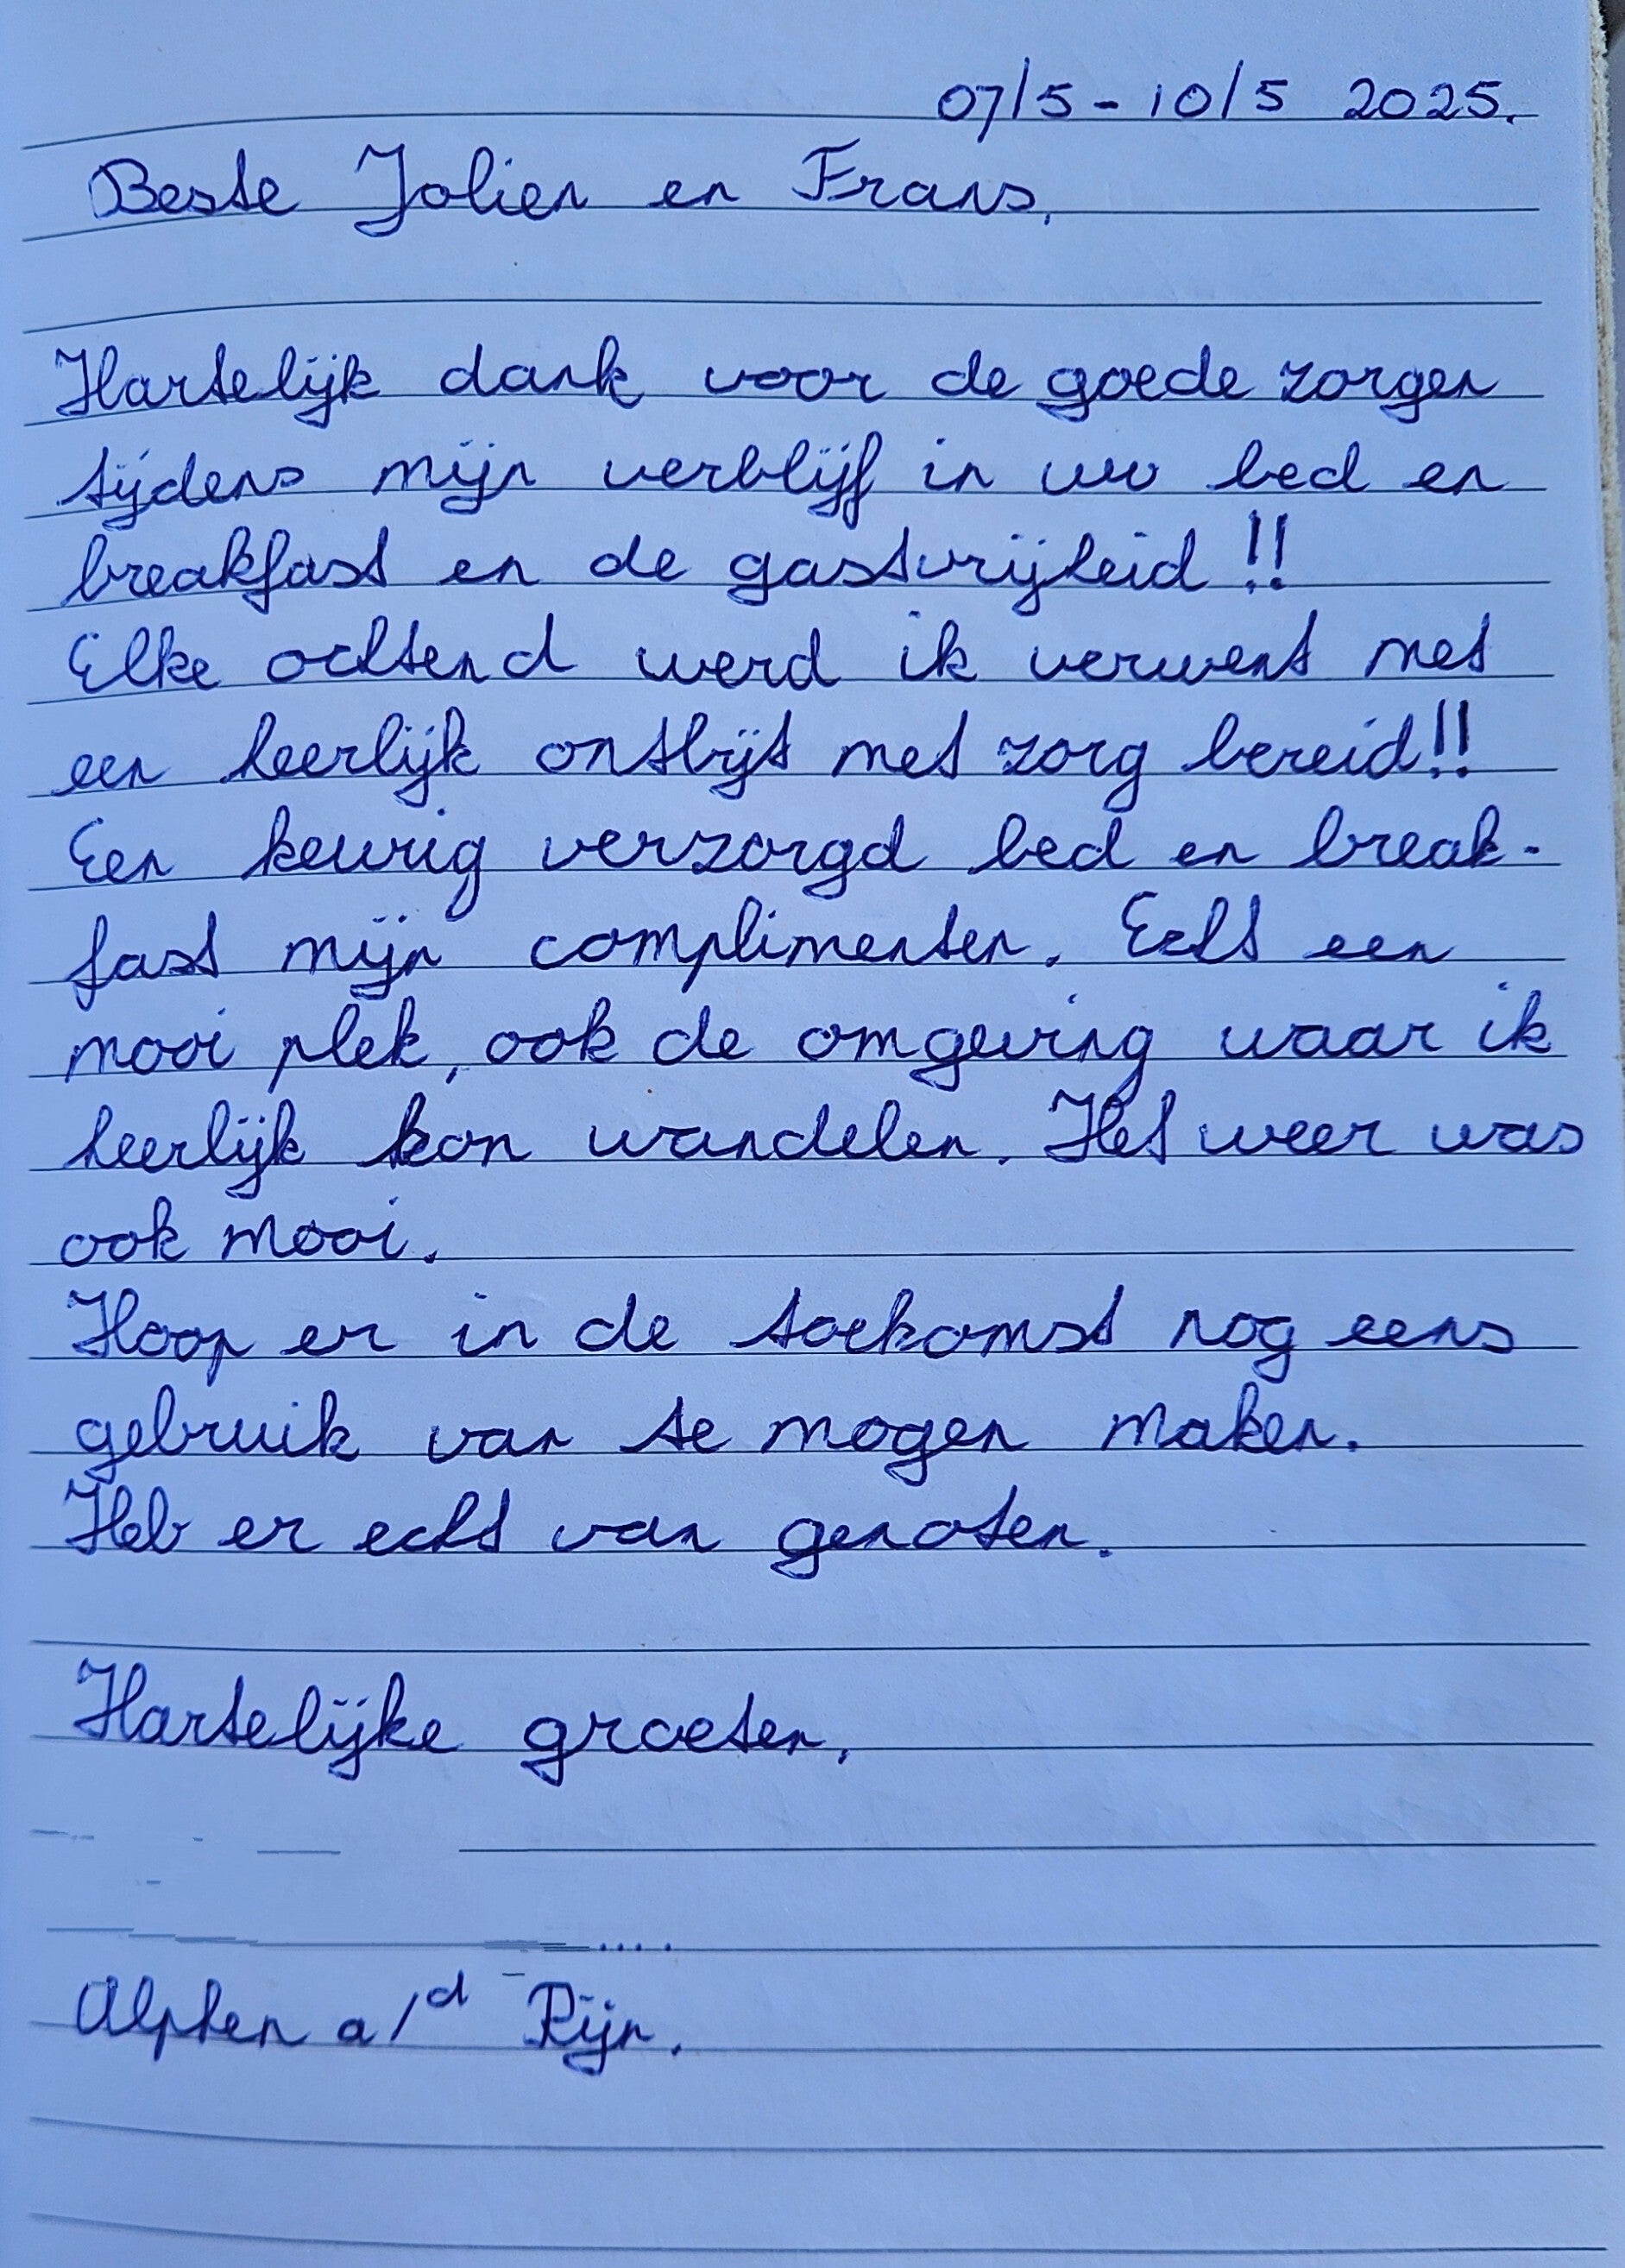 07/5 - 10/5 2025.
Beste Jolien en Frans,
Hartelijk dank voor de goede zorgen
tijdens mijn verblijf in uw bed en
breakfast en de gastvrijheid!!
Elke ochtend werd ik verwent met
een heerlijk ontbijt met zorg bereid!!
Een keurig verzorgd bed en break-
fast mijn complimenten. Echt een
mooi plek, ook de omgeving waar ik
heerlijk kon wandelen. Het weer was
ook mooi.
Hoop er in de toekomst nog eens
gebruik van te mogen maken.
Heb er echt van genoten.
Hartelijke groeten,
Alphen a/d Rijn.